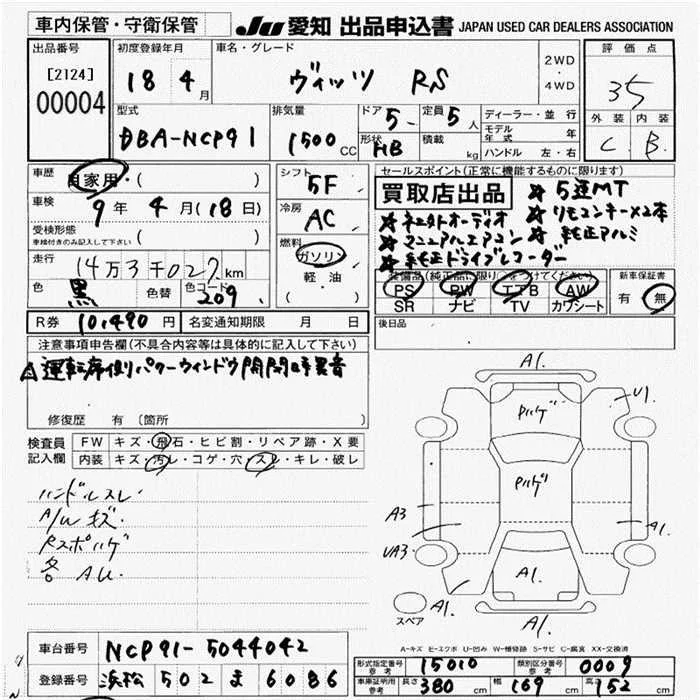 車内保管・守衛保管
JU 愛知 出品申込書 JAPAN USED CAR DEALERS ASSOCIATION
出品番号
[2124]
00004
初度登録年月
18 4月
車名・グレード
ヴィッツ RS
2WD
4WD
評価点
35
外装 内装
C. B.
型式
DBA-NCP91
排気量
1500 CC
ドア 5
形状 HB
定員 5人
積載 kg
ディーラー・並行
モデル年式 年
ハンドル 左・右
車歴 自家用・( )
車検 9年 4月(18日)
受検形態
車検付きのみ記入して下さい ( )
走行 14万3千027km
色 黒 色替 色コード 209
シフト 5F
冷房 AC
燃料
ガソリン
軽油
( )
セールスポイント(正常に機能するものに限ります)
買取店出品
☆ 5速MT
☆ リモコンキー×2本
☆ 社外オーディオ
☆ マニュアルエアコン ☆ 純正アルミ
☆ 純正ドライブレコーダー
装備品(純正品に限り○をつけてください)
PS PW エアB AW
SR ナビ TV カワシート
新車保証書
有 無
R券 10,490円 名変通知期限 月 日
後日品
注意事項申告欄(不具合内容等は具体的に記入して下さい)
△運転席側パワーウィンドウ開閉時異音
修復歴 有 〔箇所 〕
検査員記入欄
FW キズ・飛石・ヒビ割・リペア跡・X要
内装 キズ・汚レ・コゲ・穴・スレ・キレ・破レ
ハンドルスレ
A/W キズ.
Rスポハゲ
各 AU.
A1.
Pハゲ
U1
Pハゲ
A3
A1.
UA3
A1.
A1.
A1.
スペア
A-キズ E-エクボ U-凹み W-補修跡 S-サビ C-腐食 XX-交換済
車台番号 NCP91-5044042
登録番号 浜松 502 ま 6086
形式指定番号 参考 15010 類別区分番号 参考 0009
車庫証明用 参考 長さ 380 cm 幅 169 cm 高さ 152 cm